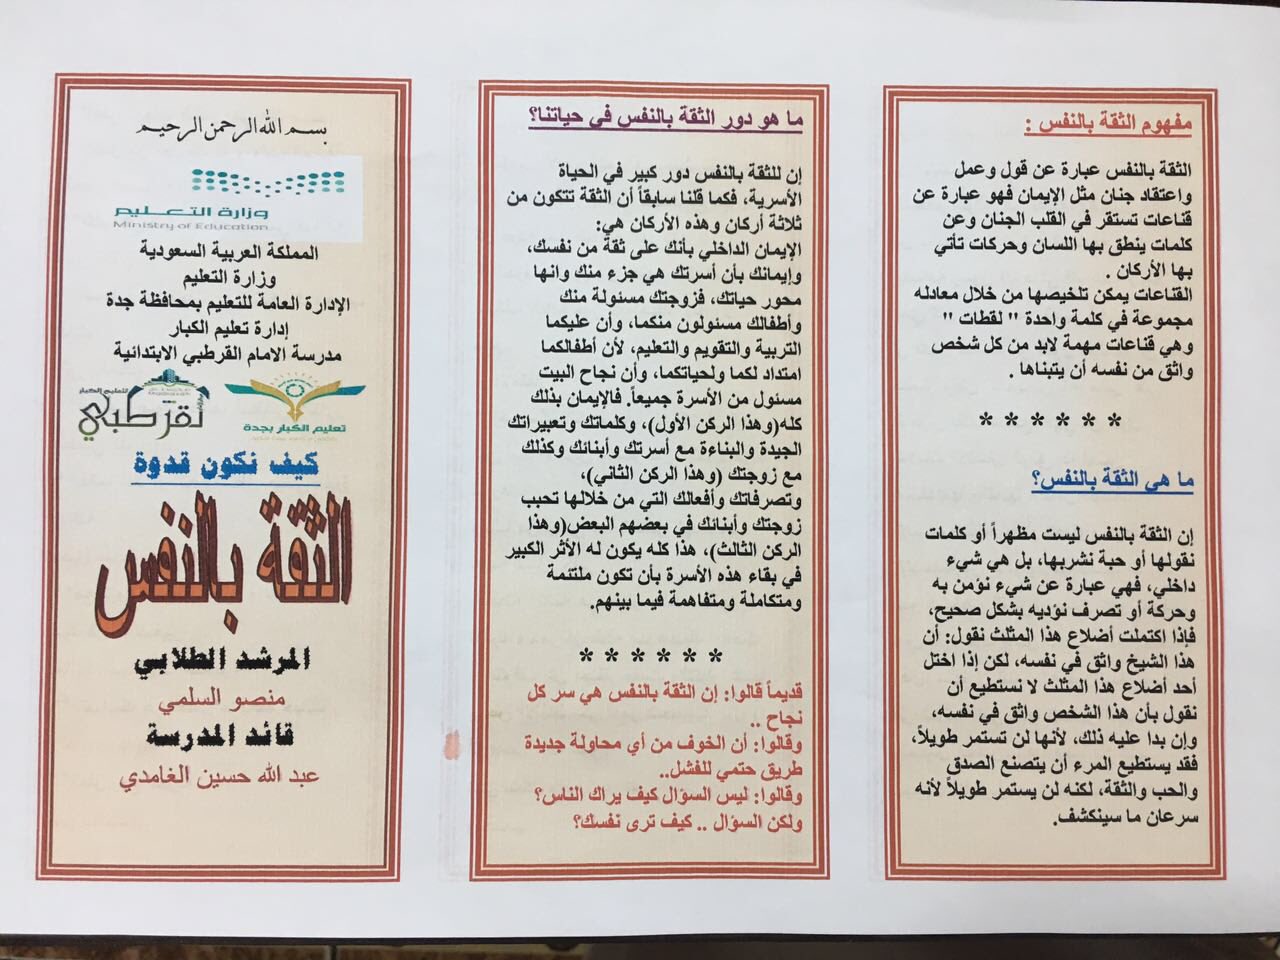 مفهوم الثقة بالنفس :
الثقة بالنفس عبارة عن قول وعمل
واعتقاد جنان مثل الإيمان فهو عبارة عن
قناعات تستقر في القلب الجنان وعن
كلمات ينطق بها اللسان وحركات تأتي
بها الأركان .
القناعات يمكن تلخيصها من خلال معادله
مجموعة في كلمة واحدة " لقطات "
وهي قناعات مهمة لابد من كل شخص
واثق من نفسه أن يتبناها .
* * * * * *
ما هي الثقة بالنفس؟
إن الثقة بالنفس ليست مظهراً أو كلمات
نقولها أو حبة نشربها، بل هي شيء
داخلي، فهي عبارة عن شيء نؤمن به
وحركة أو تصرف نؤديه بشكل صحيح،
فإذا اكتملت أضلاع هذا المثلث نقول: أن
هذا الشيخ واثق في نفسه، لكن إذا اختل
أحد أضلاع هذا المثلث لا نستطيع أن
نقول بأن هذا الشخص واثق في نفسه،
وإن بدا عليه ذلك، لأنها لن تستمر طويلاً،
فقد يستطيع المرء أن يتصنع الصدق
والحب والثقة، لكنه لن يستمر طويلاً لأنه
سرعان ما سينكشف.
ما هو دور الثقة بالنفس في حياتنا؟
إن للثقة بالنفس دور كبير في الحياة
الأسرية، فكما قلنا سابقاً أن الثقة تتكون من
ثلاثة أركان وهذه الأركان هي:
الإيمان الداخلي بأنك على ثقة من نفسك،
وإيمانك بأن أسرتك هي جزء منك وانها
محور حياتك، فزوجتك مسئولة منك
وأطفالك مسئولون منكما، وأن عليكما
التربية والتقويم والتعليم، لأن أطفالكما
امتداد لكما ولحياتكما، وأن نجاح البيت
مسئول من الأسرة جميعاً. فالإيمان بذلك
كله(وهذا الركن الأول)، وكلماتك وتعبيراتك
الجيدة والبناءة مع أسرتك وأبنائك وكذلك
مع زوجتك (وهذا الركن الثاني)،
وتصرفاتك وأفعالك التي من خلالها تحبب
زوجتك وأبنائك في بعضهم البعض(وهذا
الركن الثالث)، هذا كله يكون له الأثر الكبير
في بقاء هذه الأسرة بأن تكون ملتئمة
ومتكاملة ومتفاهمة فيما بينهم.
* * * * * *
قديماً قالوا: إن الثقة بالنفس هي سر كل
نجاح ..
وقالوا: أن الخوف من أي محاولة جديدة
طريق حتمي للفشل..
وقالوا: ليس السؤال كيف يراك الناس؟
ولكن السؤال .. كيف ترى نفسك؟
بسم الله الرحمن الرحيم
وزارة التعليم
Ministry of Education
المملكة العربية السعودية
وزارة التعليم
الإدارة العامة للتعليم بمحافظة جدة
إدارة تعليم الكبار
مدرسة الامام القرطبي الابتدائية
تعليم الكبار بجدة
كيف نكون قدوة
الثقة بالنفس
المرشد الطلابي
منصو السلمي
قائد المدرسة
عبد الله حسين الغامدي